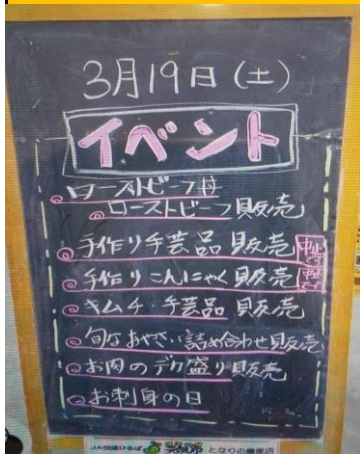 3月19日(土)
イベント
ローストビーフ丼
ローストビーフ販売
手作り手芸品販売 中止です
手作りこんにゃく販売 中止です
キムチ・手芸品販売
旬なやさい詰め合わせ販売
お肉のデカ盛り販売
お刺身の日
となりの農家店